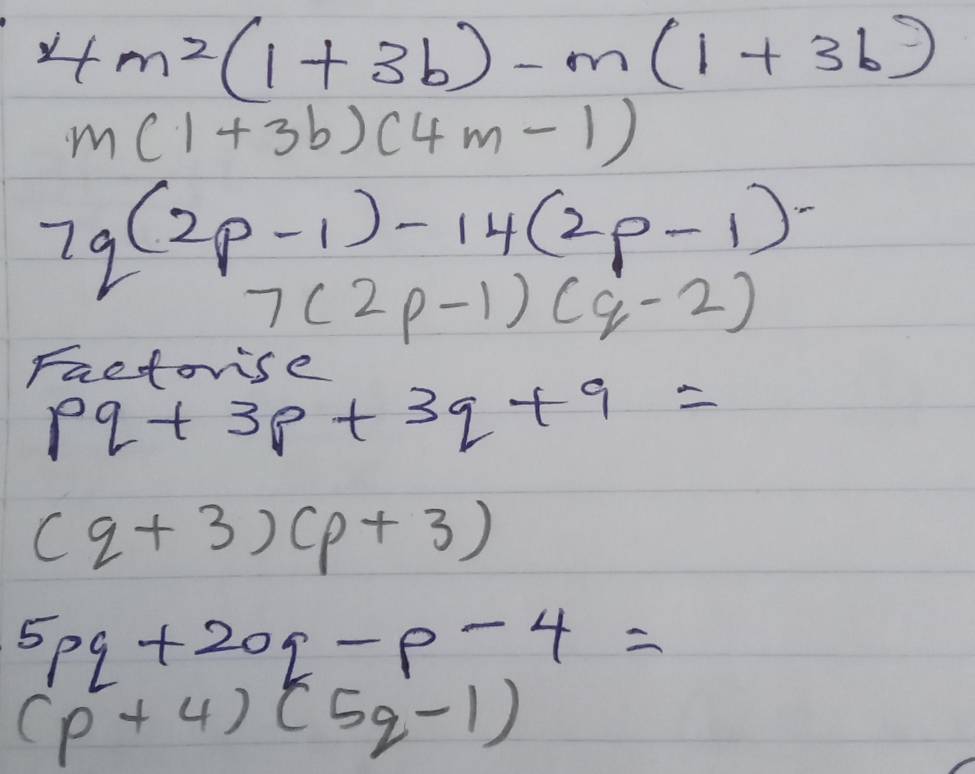 4m²(1+3b)-m(1+3b)
m(1+3b)(4m-1)
7q(2p-1)-14(2p-1)-
7(2p-1)(q-2)
Factorise
pq+3p+3q+9=
(q+3)(p+3)
5pq+20q-p-4=
(p+4)(5q-1)